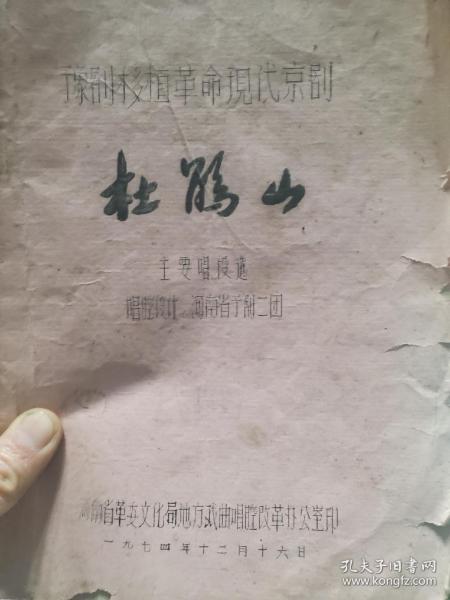 豫剧移植革命現代京剧
杜鹃山
主要唱段选
唱腔设计 河南省予剧二团
河南省革委文化局地方戏曲唱腔改革办公室印
一九七四年十二月十六日
孔夫子旧书网